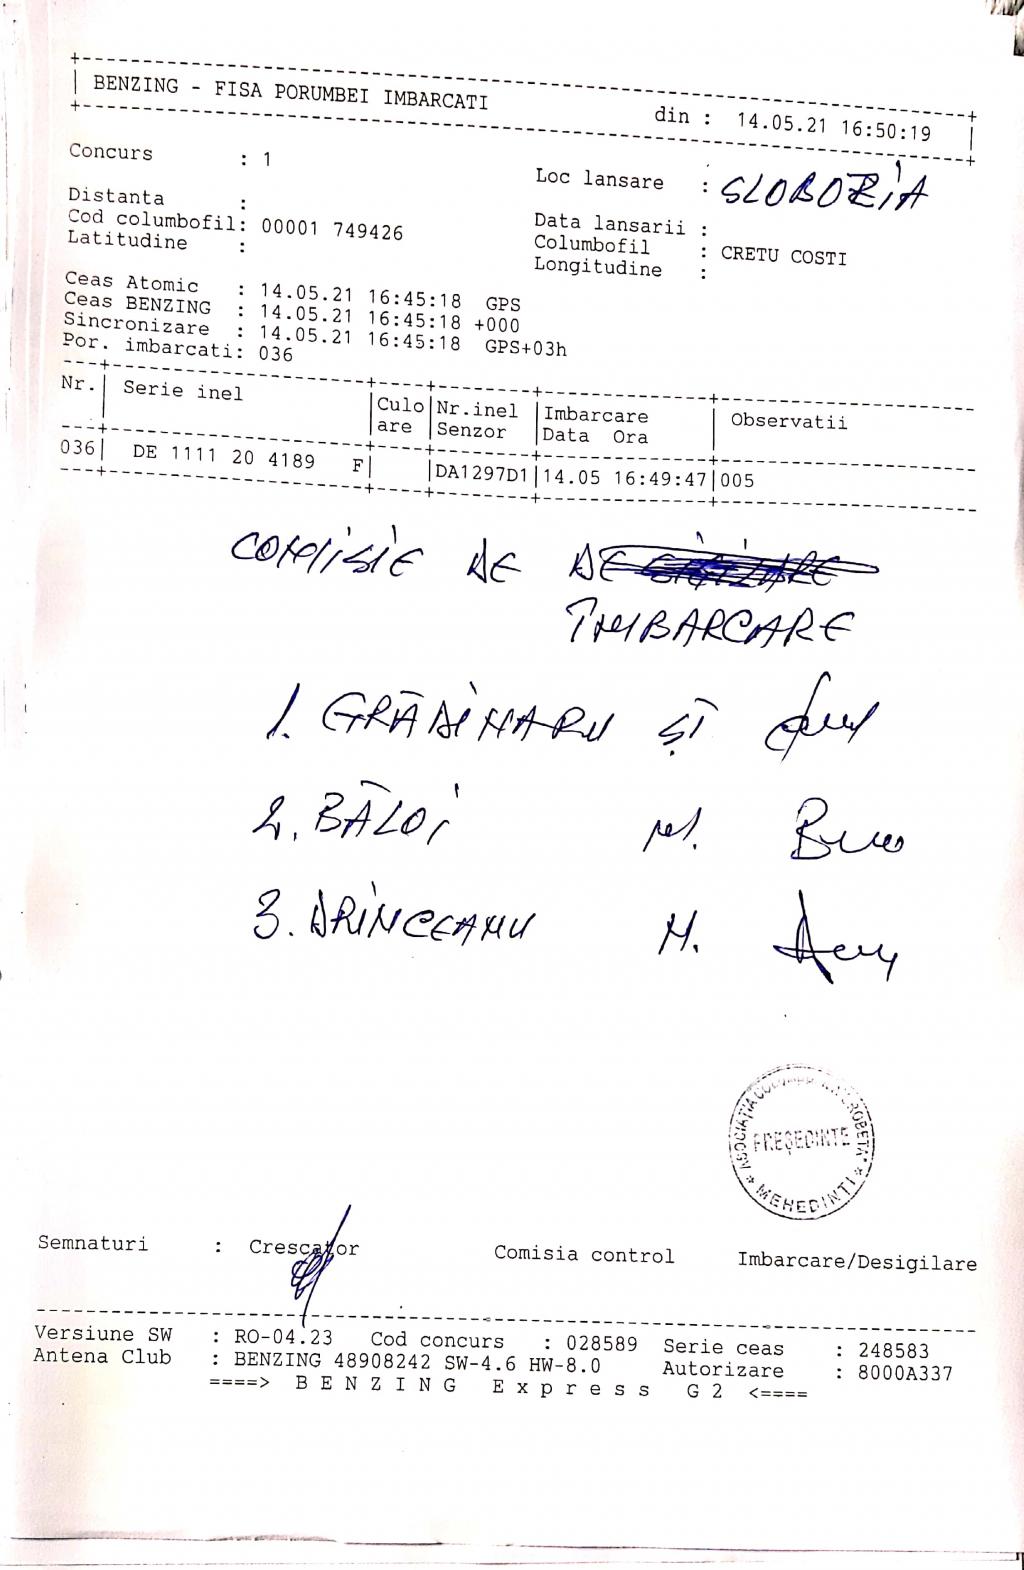 BENZING - FISA PORUMBEI IMBARCATI din : 14.05.21 16:50:19
Concurs : 1 Loc lansare : SLOBOZIA
Distanta : Data lansarii :
Cod columbofil: 00001 749426 Columbofil : CRETU COSTI
Latitudine : Longitudine :
Ceas Atomic : 14.05.21 16:45:18 GPS
Ceas BENZING : 14.05.21 16:45:18 +000
Sincronizare : 14.05.21 16:45:18 GPS+03h
Por. imbarcati: 036
Nr. Serie inel Culo Nr.inel Imbarcare Observatii
are Senzor Data Ora
036 DE 1111 20 4189 F DA1297D1 14.05 16:49:47 005
COMISIE DE
ÎMBARCARE
1. GRĂDINARU ȘT
2. BĂLOI M.
3. DRÎNCEANU N.
ASOCIAȚIA DROBETA
PREȘEDINTE
* MEHEDINTI *
Semnaturi : Crescator Comisia control Imbarcare/Desigilare
Versiune SW : RO-04.23 Cod concurs : 028589 Serie ceas : 248583
Antena Club : BENZING 48908242 SW-4.6 HW-8.0 Autorizare : 8000A337
====> B E N Z I N G E x p r e s s G 2 <====